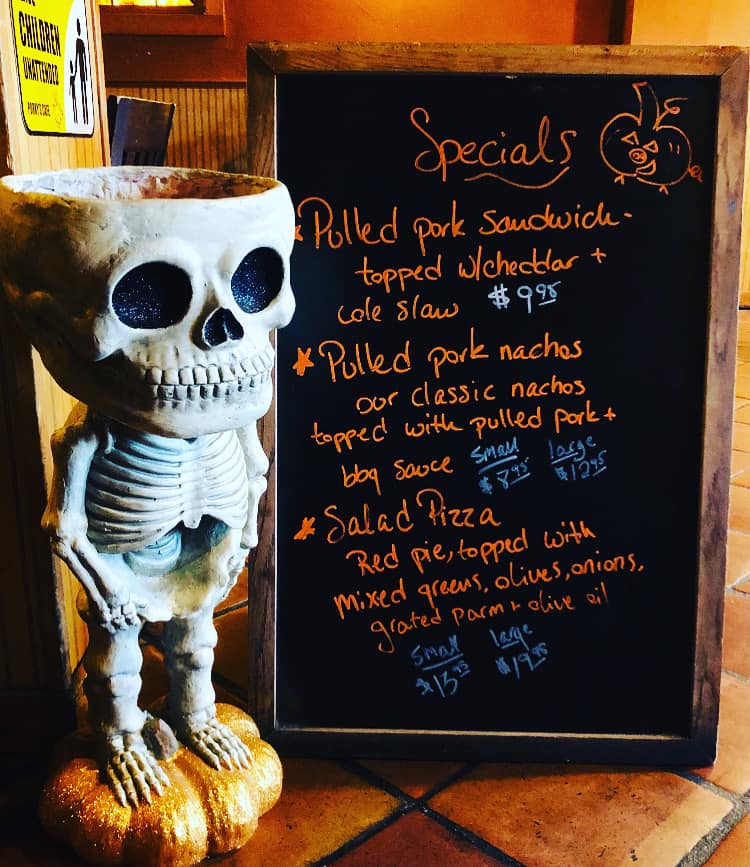 CHILDREN
UNATTENDED
PORKY'S CAFE
Specials
* Pulled pork Sandwich -
topped w/cheddar +
cole slaw $9.95
* Pulled pork nachos
our classic nachos
topped with pulled pork +
bbq sauce small large
$8.95 $12.95
* Salad Pizza
Red pie, topped with
mixed greens, olives, onions,
grated parm + olive oil
small large
$13.95 $19.95